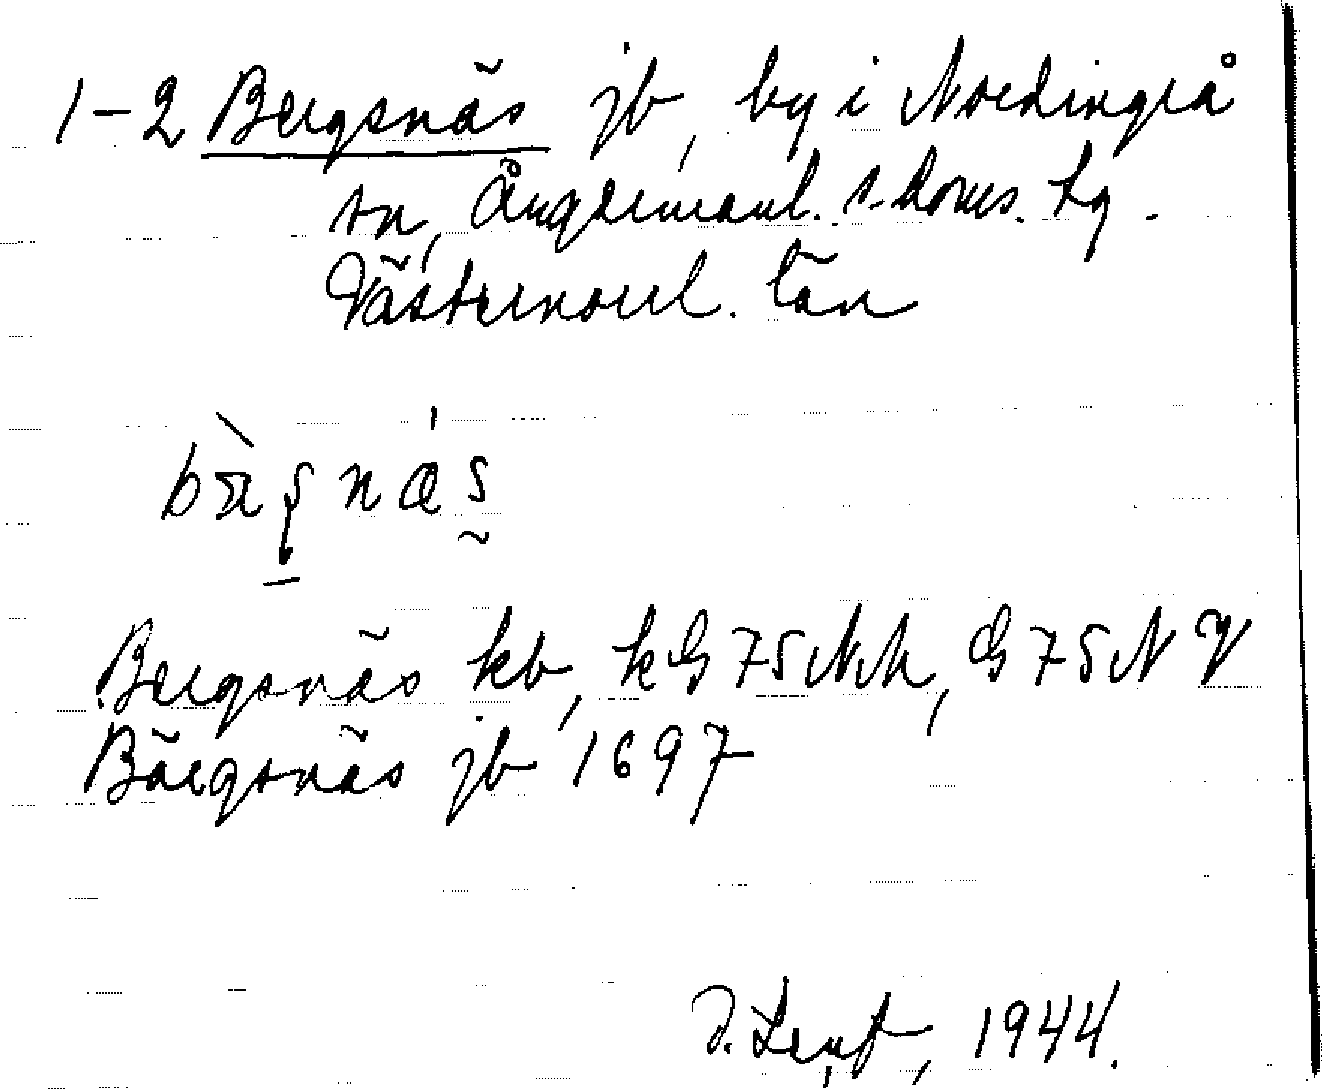 1-2 Bergsnäs jb, by i Nordingrå
sn, Ångermanl. s. doms. Lg.
Västernorrl. län
Bergsnäs kb, k G 75 NM, G 75 N V
Bärgsnäs jb 1697
1944.